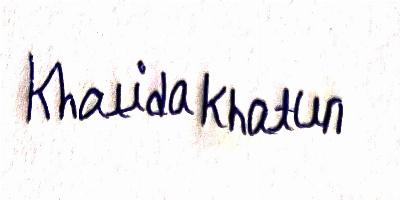 Khalida Khatun